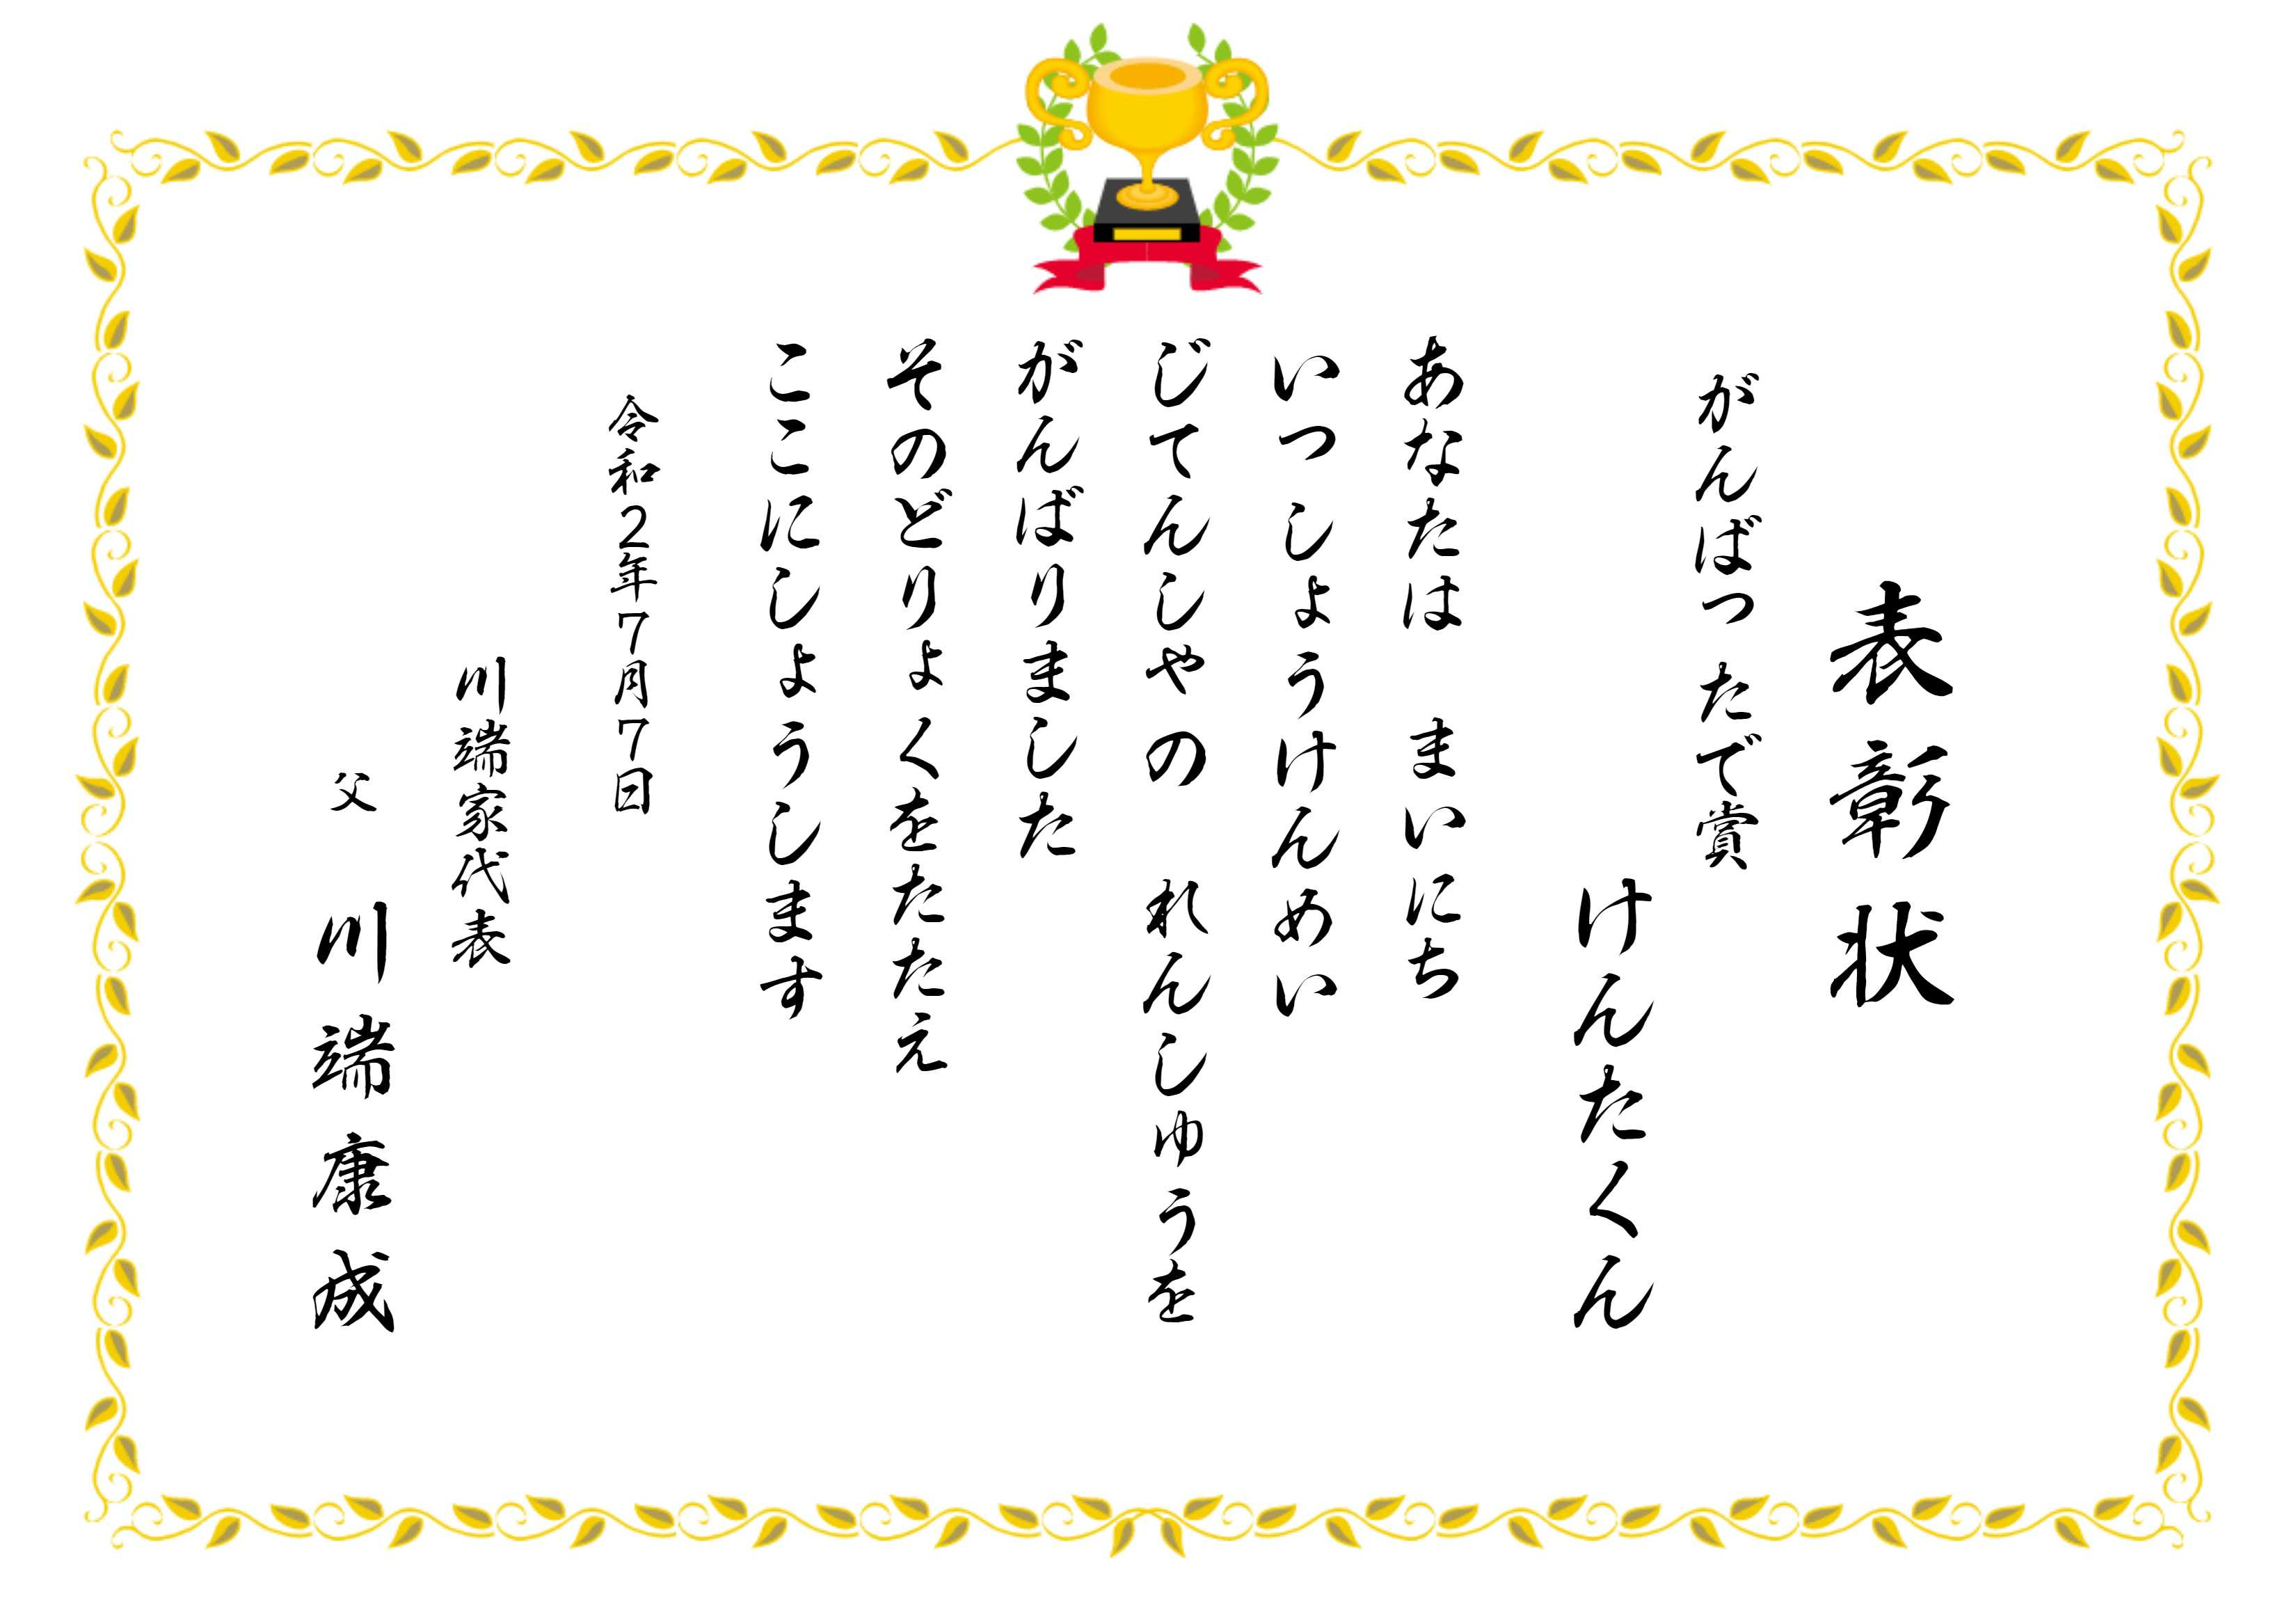 表彰状
がんばったで賞
けんたくん
あなたは　まいにち
いっしょうけんめい
じてんしゃの　れんしゅうを
がんばりました
そのどりょくをたたえ
ここにしょうします
令和２年７月７日
川端家代表
父　川端康成